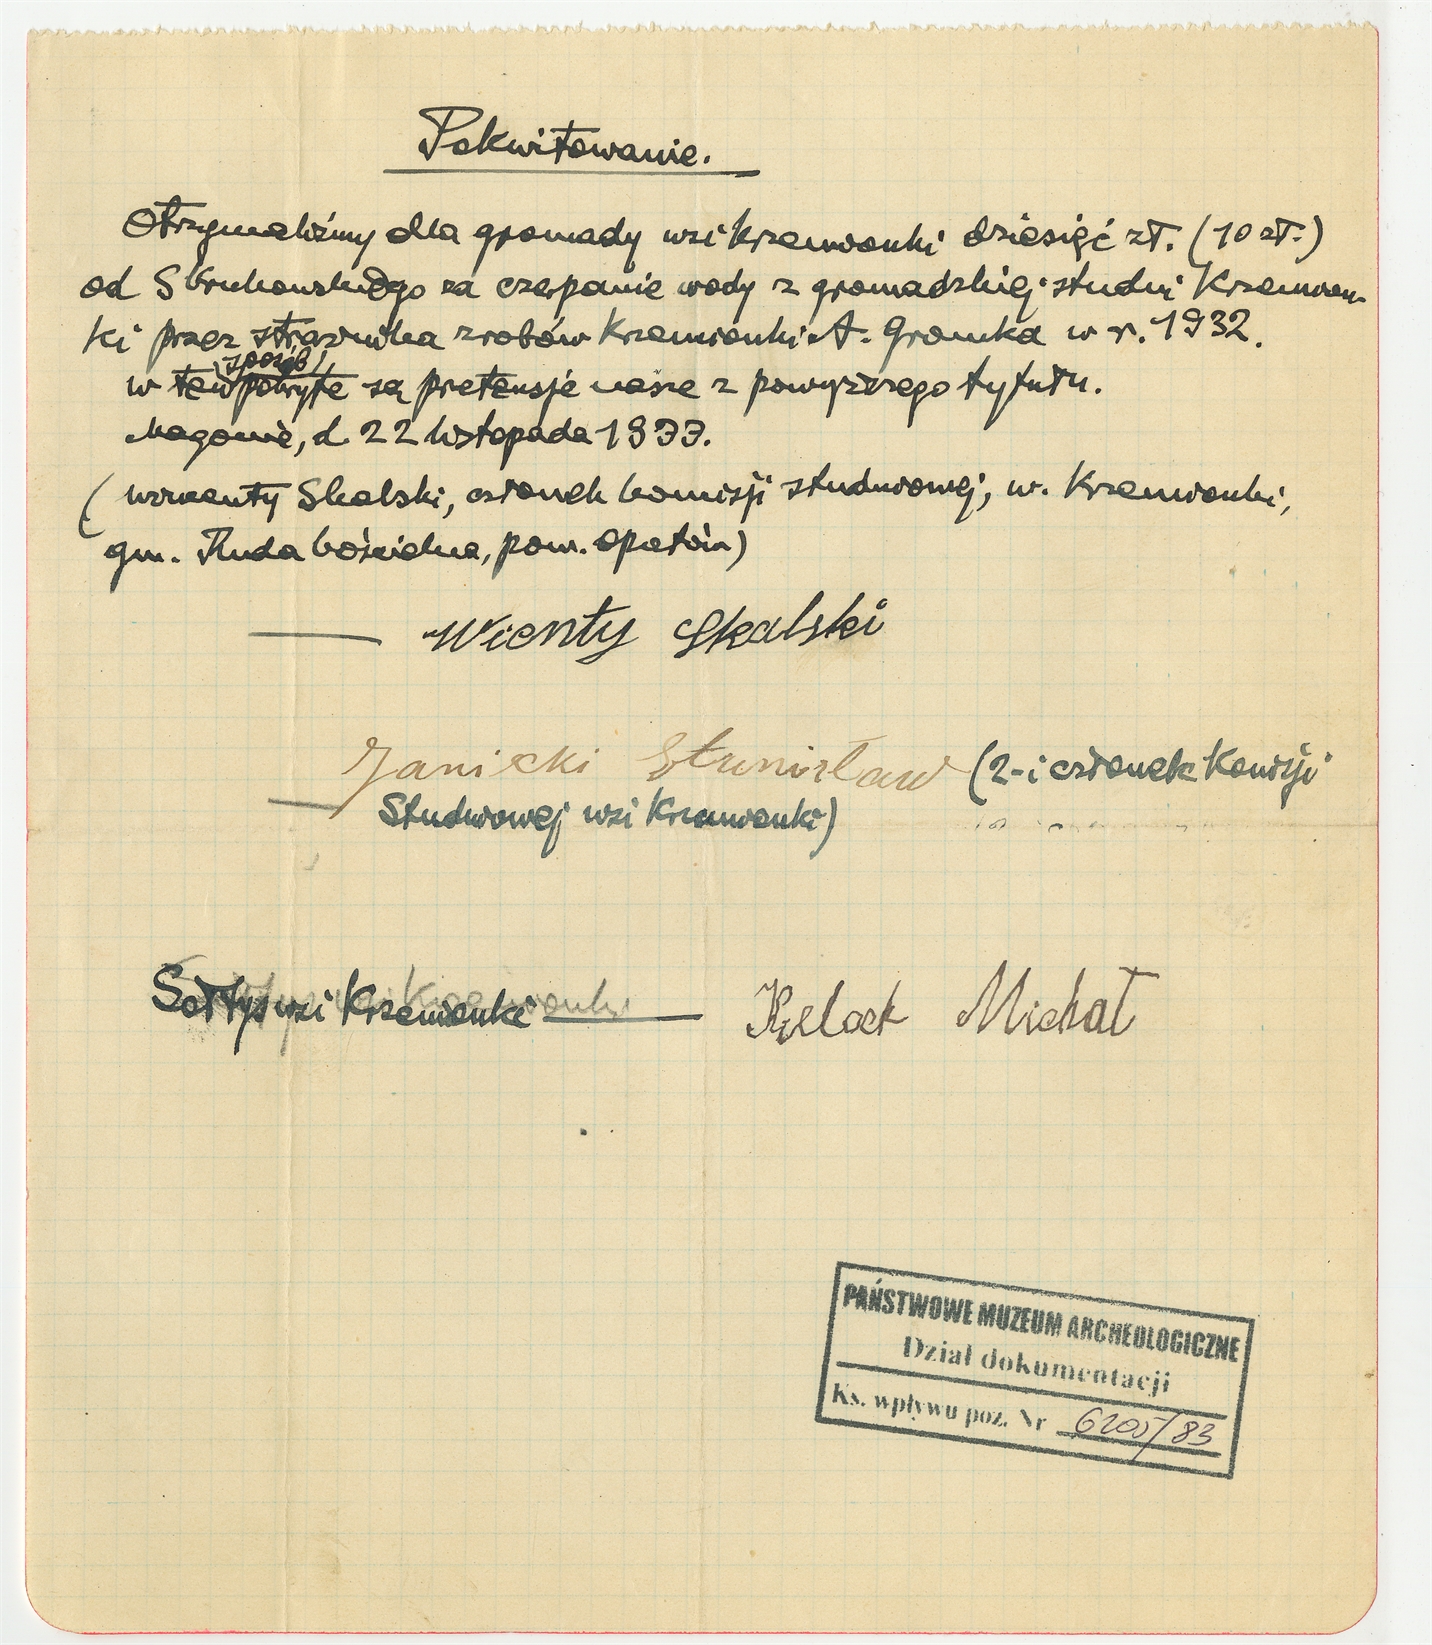 Pokwitowanie.
Otrzymaliśmy dla gromady wsi Krzemionki dziesięć zł. (10 zł.)
od S. Krukowskiego za czerpanie wody z gromadzkiej studni Krzemion-
ki przez strażnika zrobów Krzemionki A. Gromka w r. 1932.
sposób
w ten pokryte są pretensje nasze z powyższego tytułu.
Magonie, d. 22 listopada 1933.
(Wincenty Skalski, członek komisji studniowej, w. Krzemionki,
gm. Ruda Kościelna, pow. Opatów)
Wicnty Skalski
Janicki Stanisław (2-i członek Komisji
Studniowej wsi Krzemionki)
Sołtys wsi Krzemionki Michał
PAŃSTWOWE MUZEUM ARCHEOLOGICZNE
Dział dokumentacji
Ks. wpływu poz. Nr 6205/83